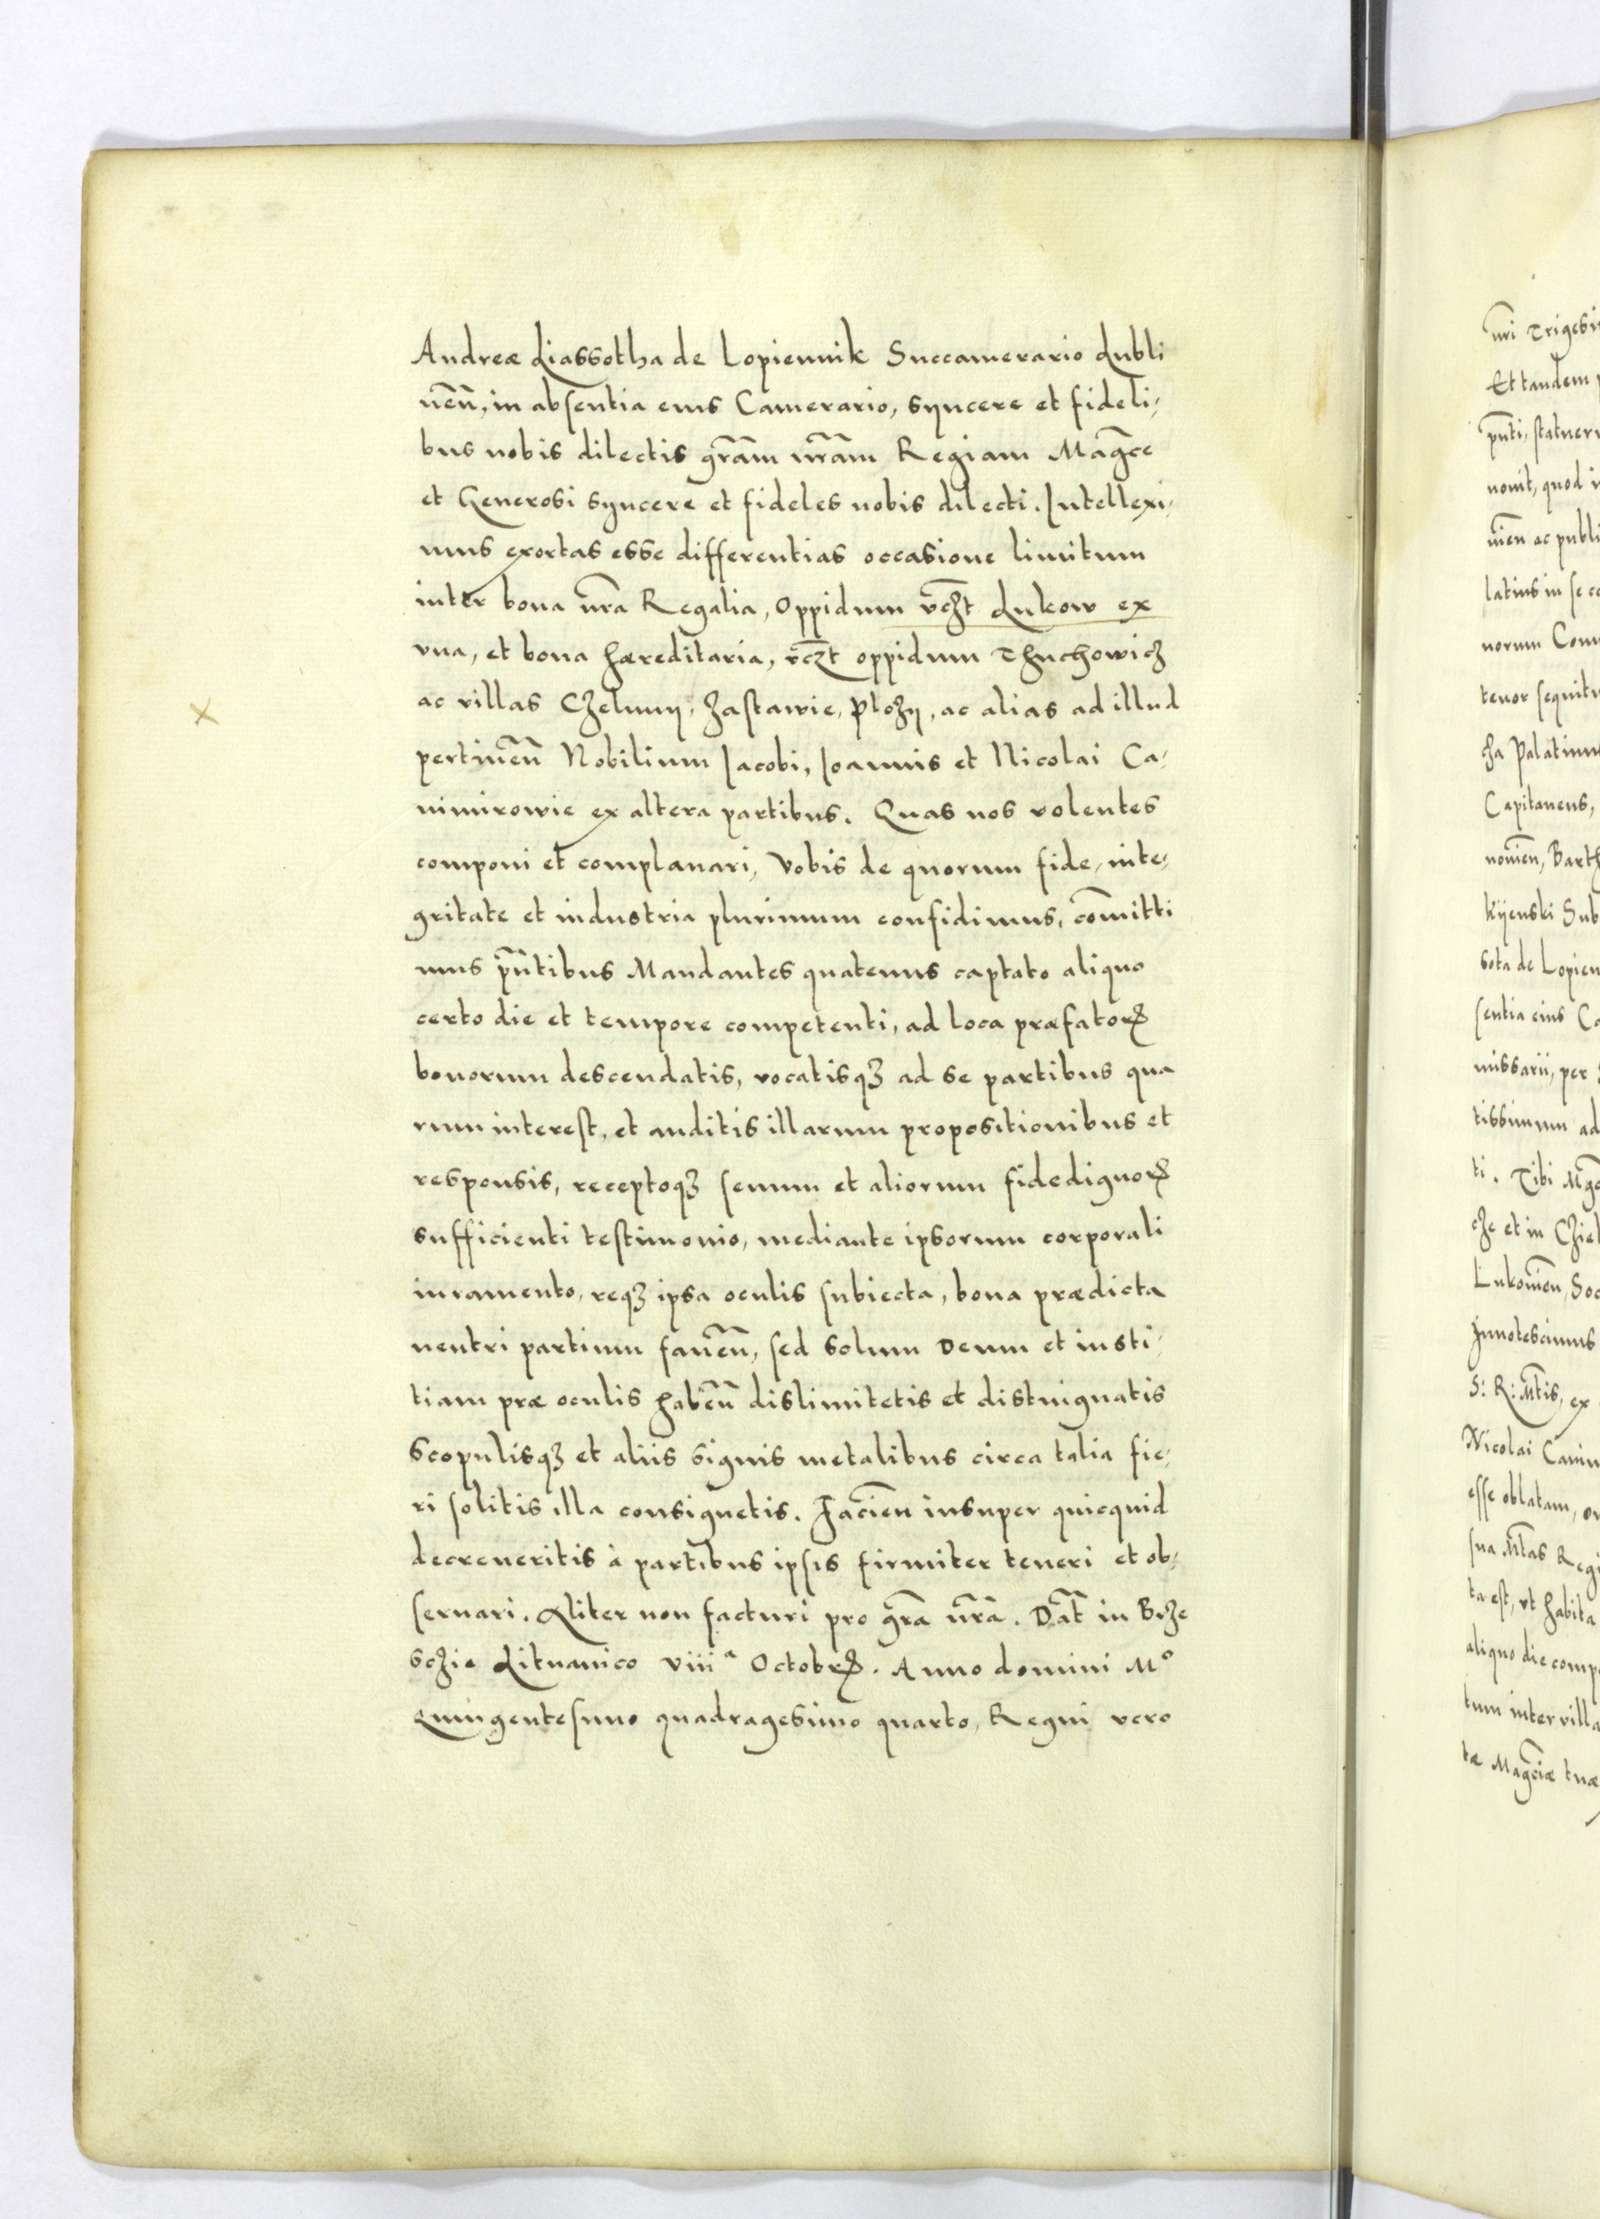 Andreæ Liassotha de Lopiennik Succamerario Lubli
neñ, in absentia eius Camerario, syncere et fideli,
bus nobis dilectis gr̃am nr̃am Regiam Mag̃ce
et Generosi syncere et fideles nobis dilecti. Intellexi,
mus exortas esse differentias occasione limitum
inter bona nr̃a Regalia, Oppidum vc̃zt Lukow ex
vna, et bona hæreditaria, vc̃zt oppidum Thuchowicz
ac villas Czelmy, Zastawie, Plozy, ac alias ad illud
pertineñ Nobilium Iacobi, Ioannis et Nicolai Ca,
nimirowie ex altera partibus. Quas nos volentes
componi et complanari, Vobis de quorum fide, inte,
gritate et industria plurimum confidimus, com̃itti
mus pñtibus Mandantes quatenus captato aliquo
certo die et tempore competenti, ad loca præfatoꝝ
bonorum descendatis, vocatisqꝫ ad se partibus qua
rum interest, et auditis illarum propositionibus et
responsis, receptoqꝫ senum et aliorum fidedignoꝝ
sufficienti testimonio, mediante ipsorum corporali
iuramento, reqꝫ ipsa oculis subiecta, bona prædicta
neutri partium faueñ, sed solum Deum et iusti,
tiam præ oculis habeñ dislimitetis et distinguatis
Scopulisqꝫ et aliis signis metalibus circa talia fie,
ri solitis illa consignetis. Facieñ insuper quicquid
decreueritis à partibus ipsis firmiter teneri et ob,
seruari. Aliter non facturi pro gr̃a nr̃a. Dat̃ in Brze
sczie Lituanico viiiᵃ Octobꝝ. Anno domini Mº
Quingentesimo quadragesimo quarto, Regni vero
nr̃i Trigesi
Et tandem
pñti, statuer
nouit, quod
ac publi
latius in se co
norum Com
tenor sequitu
cha Palatinu
Capitaneus,
Barth
Kijenski Sub
sota de Lopien
sentia eius Ca
missarii, per
tissimum ad
ti. Tibi Mg̃c
che et in Chiel
Lukowieñ, Soc
Innotescimus
S: R: Mt̃is, ex
Nicolai Canim
esse oblatam,
sua Mt̃as Regi
ta est, vt habita
aliquo die comp
tum inter villa
tæ Mag̃ciæ tuæ